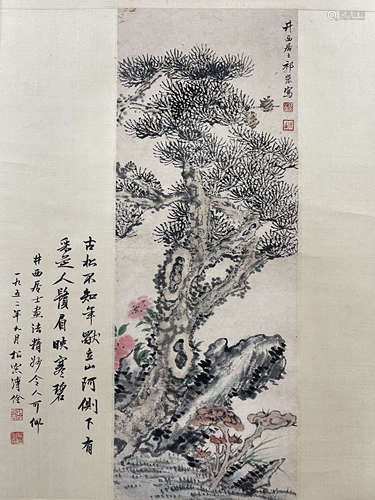 井西居士祁崑寫
古松不知年獨立山阿側下有
采芝人鬚眉映寒碧
井西居士畫法精妙令人可佩
一九五二年九月松窗溥佺